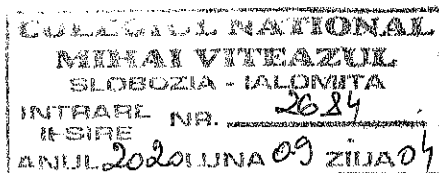 COLEGIUL NATIONAL
MIHAI VITEAZUL
SLOBOZIA - IALOMITA
INTRARE NR. 2684
IESIRE
ANUL 2020 LUNA 09 ZIUA 04